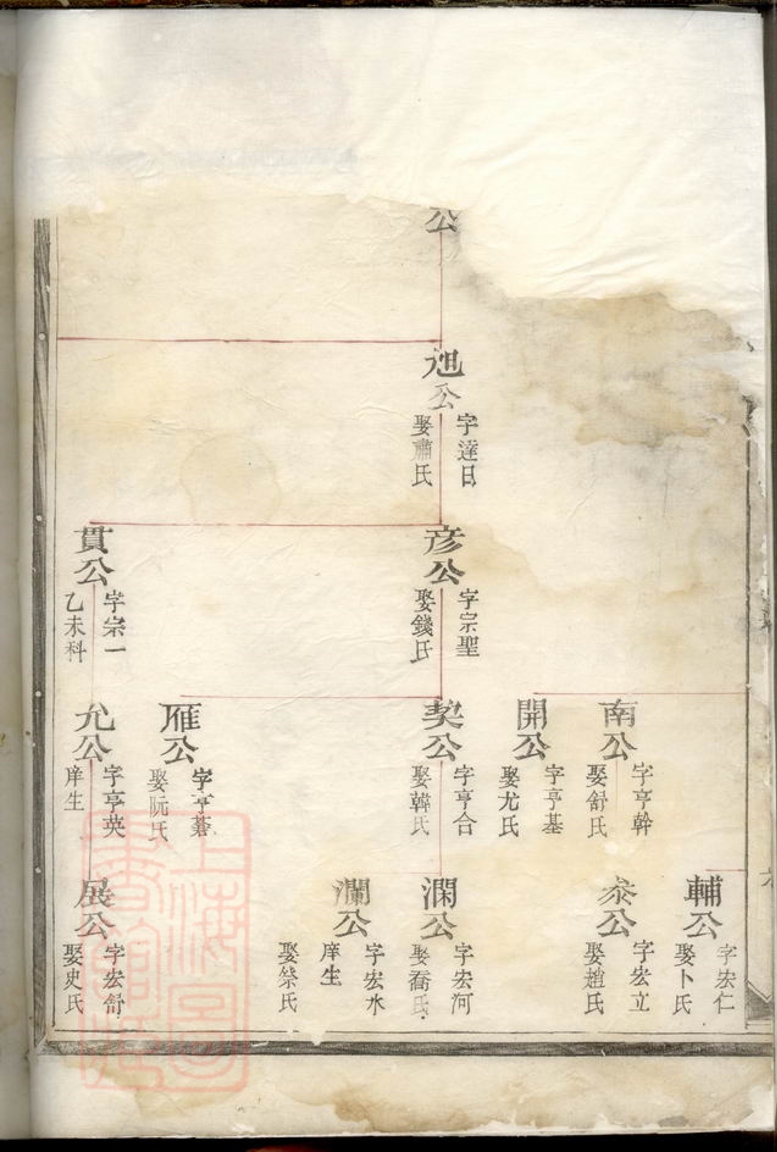 公
旭公
字達日
娶蕭氏
彦公
字宗聖
娶錢氏
貫公
字宗一
乙未科
南公
字亨幹
娶舒氏
開公
字亨基
娶尤氏
契公
字亨合
娶韓氏
雁公
字亨
娶阮氏
允公
字亨英
庠生
輔公
字宏仁
娶卜氏
泰公
字宏立
娶趙氏
澗公
字宏河
娶喬氏
瀾公
字宏水
庠生
娶祭氏
展公
字宏舒
娶史氏
上海圖書館藏